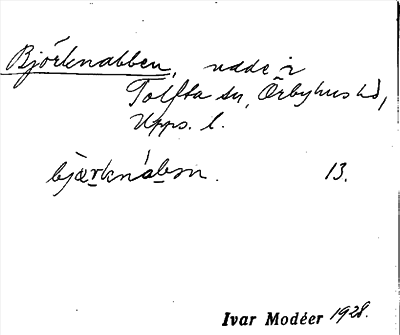 Björknabben, udde i
Tolfta sn, Örbyhus hd,
Upps. l.
bjæ̀rknábən. 13.
Ivar Modéer 1928.